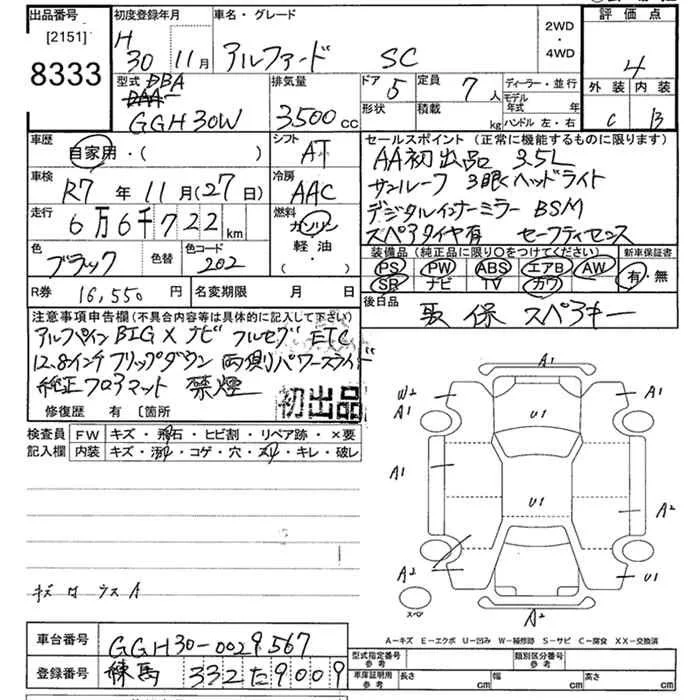 出品番号
[2151]
8333
初度登録年月
H
30 11月
車名・グレード
アルファード SC
2WD
・
4WD
評価点
4
外装 内装
C B
型式 DBA
DAA
GGH30W
排気量
3500 cc
ドア 5
定員 7 人
形状
積載 kg
ディーラー・並行
モデル年式 年
ハンドル 左・右
車歴
自家用・( )
シフト
AT
車検
R7 年 11 月 (27 日)
冷房
AAC
走行
6万6千722 km
燃料
ガソリン
軽油・
( )
色
ブラック
色替
色コード
202
R券 16,550 円
名変期限 月 日
セールスポイント(正常に機能するものに限ります)
AA初出品 3.5L
サンルーフ 3眼ヘッドライト
デジタルインナーミラー BSM
スペアタイヤ有 セーフティセンス
装備品(純正品に限り〇をつけてください)
PS PW ABS エアB AW
SR ナビ TV カワ
新車保証書
有・無
後日品
取 保 スペアキー
注意事項申告欄(不具合内容等は具体的に記入して下さい)
アルパイン BIG X ナビ フルセグ ETC
12.8インチ フリップダウン 両側パワースライド
純正フロアマット 禁煙
初出品
修復歴 有 〔箇所
検査員記入欄
FW キズ・飛石・ヒビ割・リペア跡・×要
内装 キズ・汚れ・コゲ・穴・スリ・キレ・破レ
A1
W2
A1
U1
A1
A1
A1
U1
A2
A2
U1
スペア
A2
A-キズ E-エクボ U-凹み W-補修跡 S-サビ C-腐食 XX-交換済
車台番号
GGH30-0029567
登録番号
練馬 332 た 9009
型式指定番号
参考
類別区分番号
参考
車庫証明用
参考
長さ cm
幅 cm
高さ cm